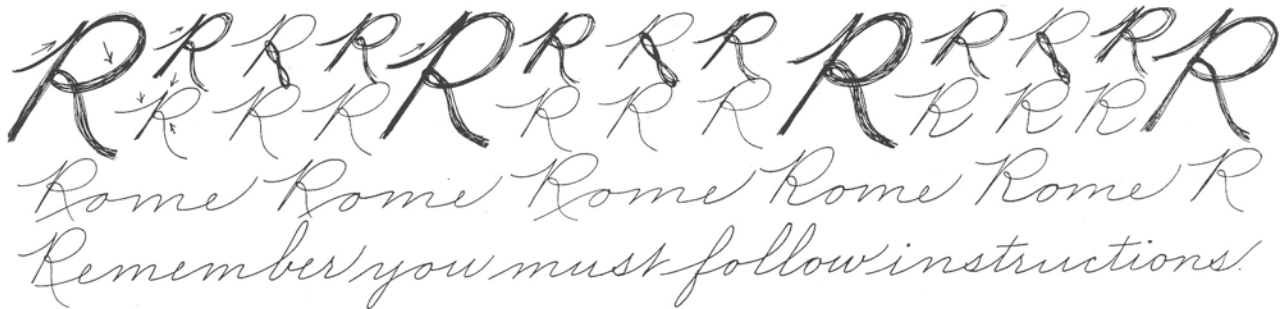 R R R R R R R R R R R R R
R R R R R R R R R
Rome Rome Rome Rome Rome R
Remember you must follow instructions.